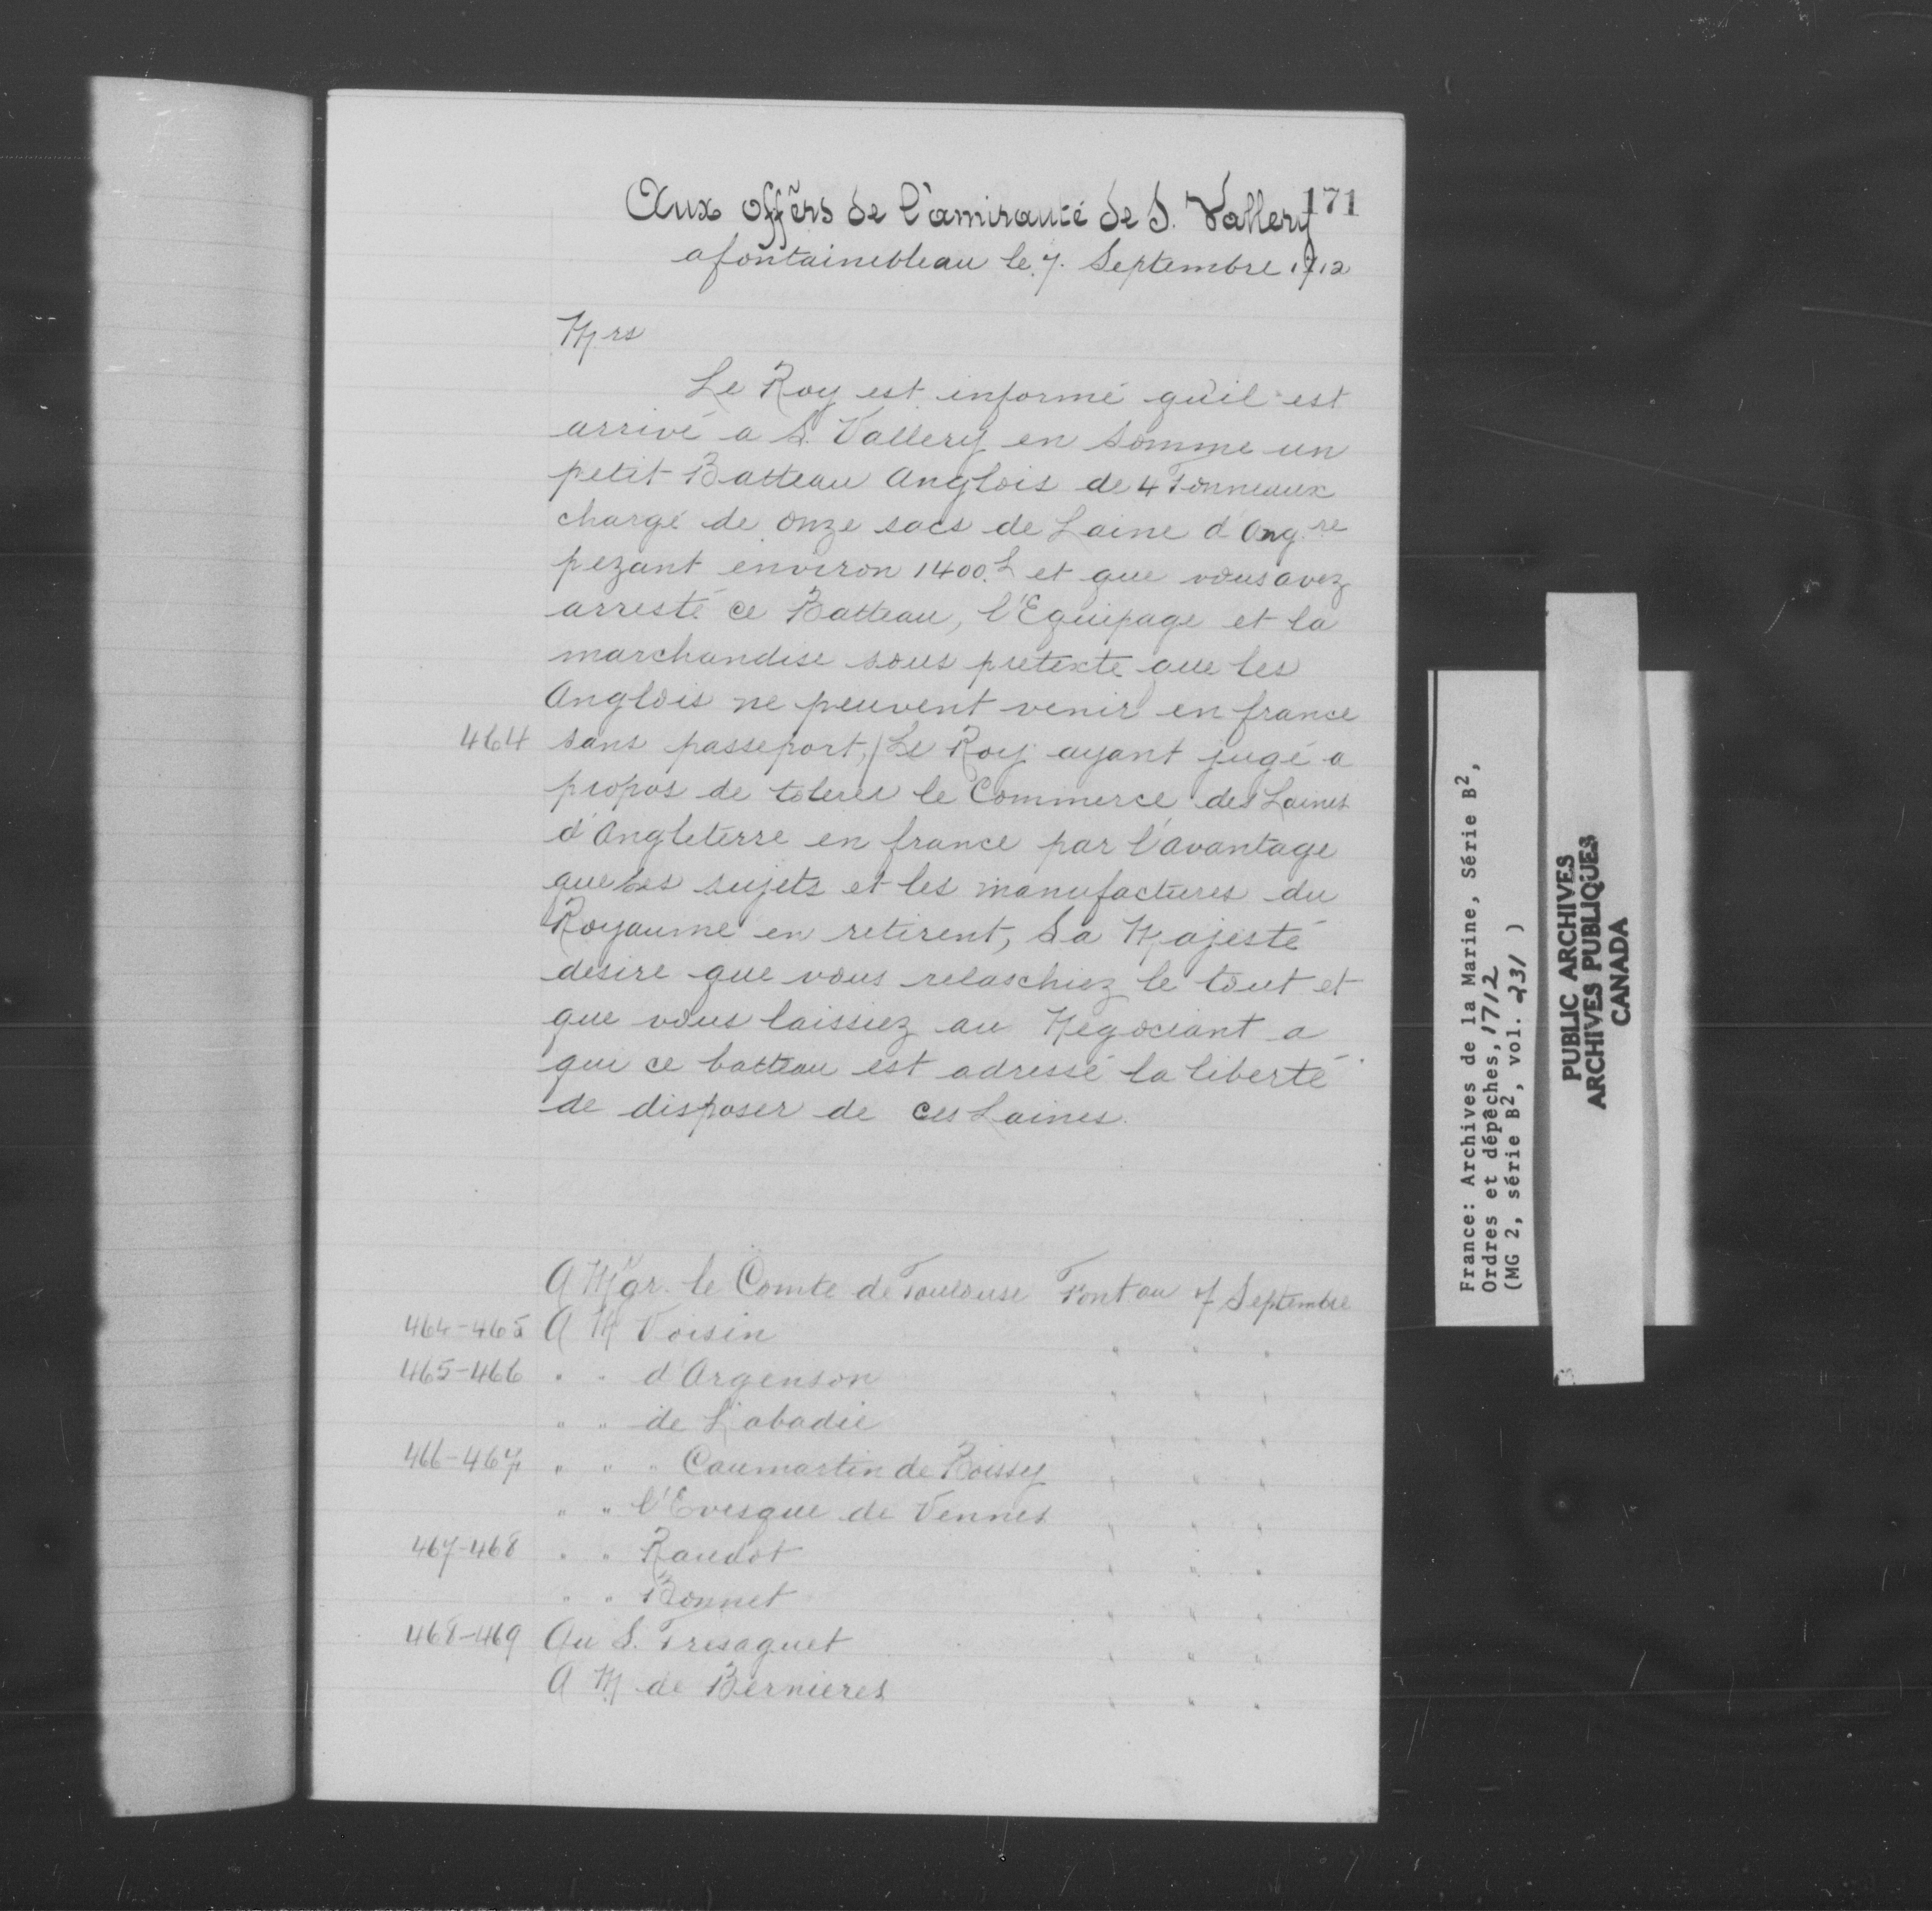 171
Aux offers de l'amirauté de S. Vallery
a fontainebleau le 7. Septembre 1712
Mrs
Le Roy est informé qu'il est
arrivé a S. Vallery en Somme un
petit Batteau Anglois de 4 Tonneaux
chargé de onze sacs de Laine d'Ang.re
pezant environ 1400.L et que vous avez
arresté ce Batteau, l'Equipage et la
marchandise sous pretexte que les
Anglois ne peuvent venir en france
464 sans passeport, / Le Roy ayant jugé a
propos de tolerer le Commerce des Laines
d'Angleterre en france par l'avantage
que ses sujets et les manufactures du
Royaume en retirent, Sa Majesté
desire que vous relaschiez le tout et
que vous laissiez au Negociant a
qui ce batteau est adressé la liberté
de disposer de ces Laines.
A Mgr. le Comte de Toulouse Font au 7 Septembre
464-465 A M Voisin " " "
465-466 " " d'Argenson " " "
" " de Labadie " " "
466-467 " " " Caumartin de Boissy " " "
" " l'Evesque de Vennes " " "
467-468 " " Raudot " " "
" " Bonnet " " "
468-469 Au S. Tresaguet " " "
A M de Bernieres " " "
France: Archives de la Marine, Série B2,
Ordres et dépêches, 1712
(MG 2, série B2, vol. 231 )
PUBLIC ARCHIVES
ARCHIVES PUBLIQUES
CANADA